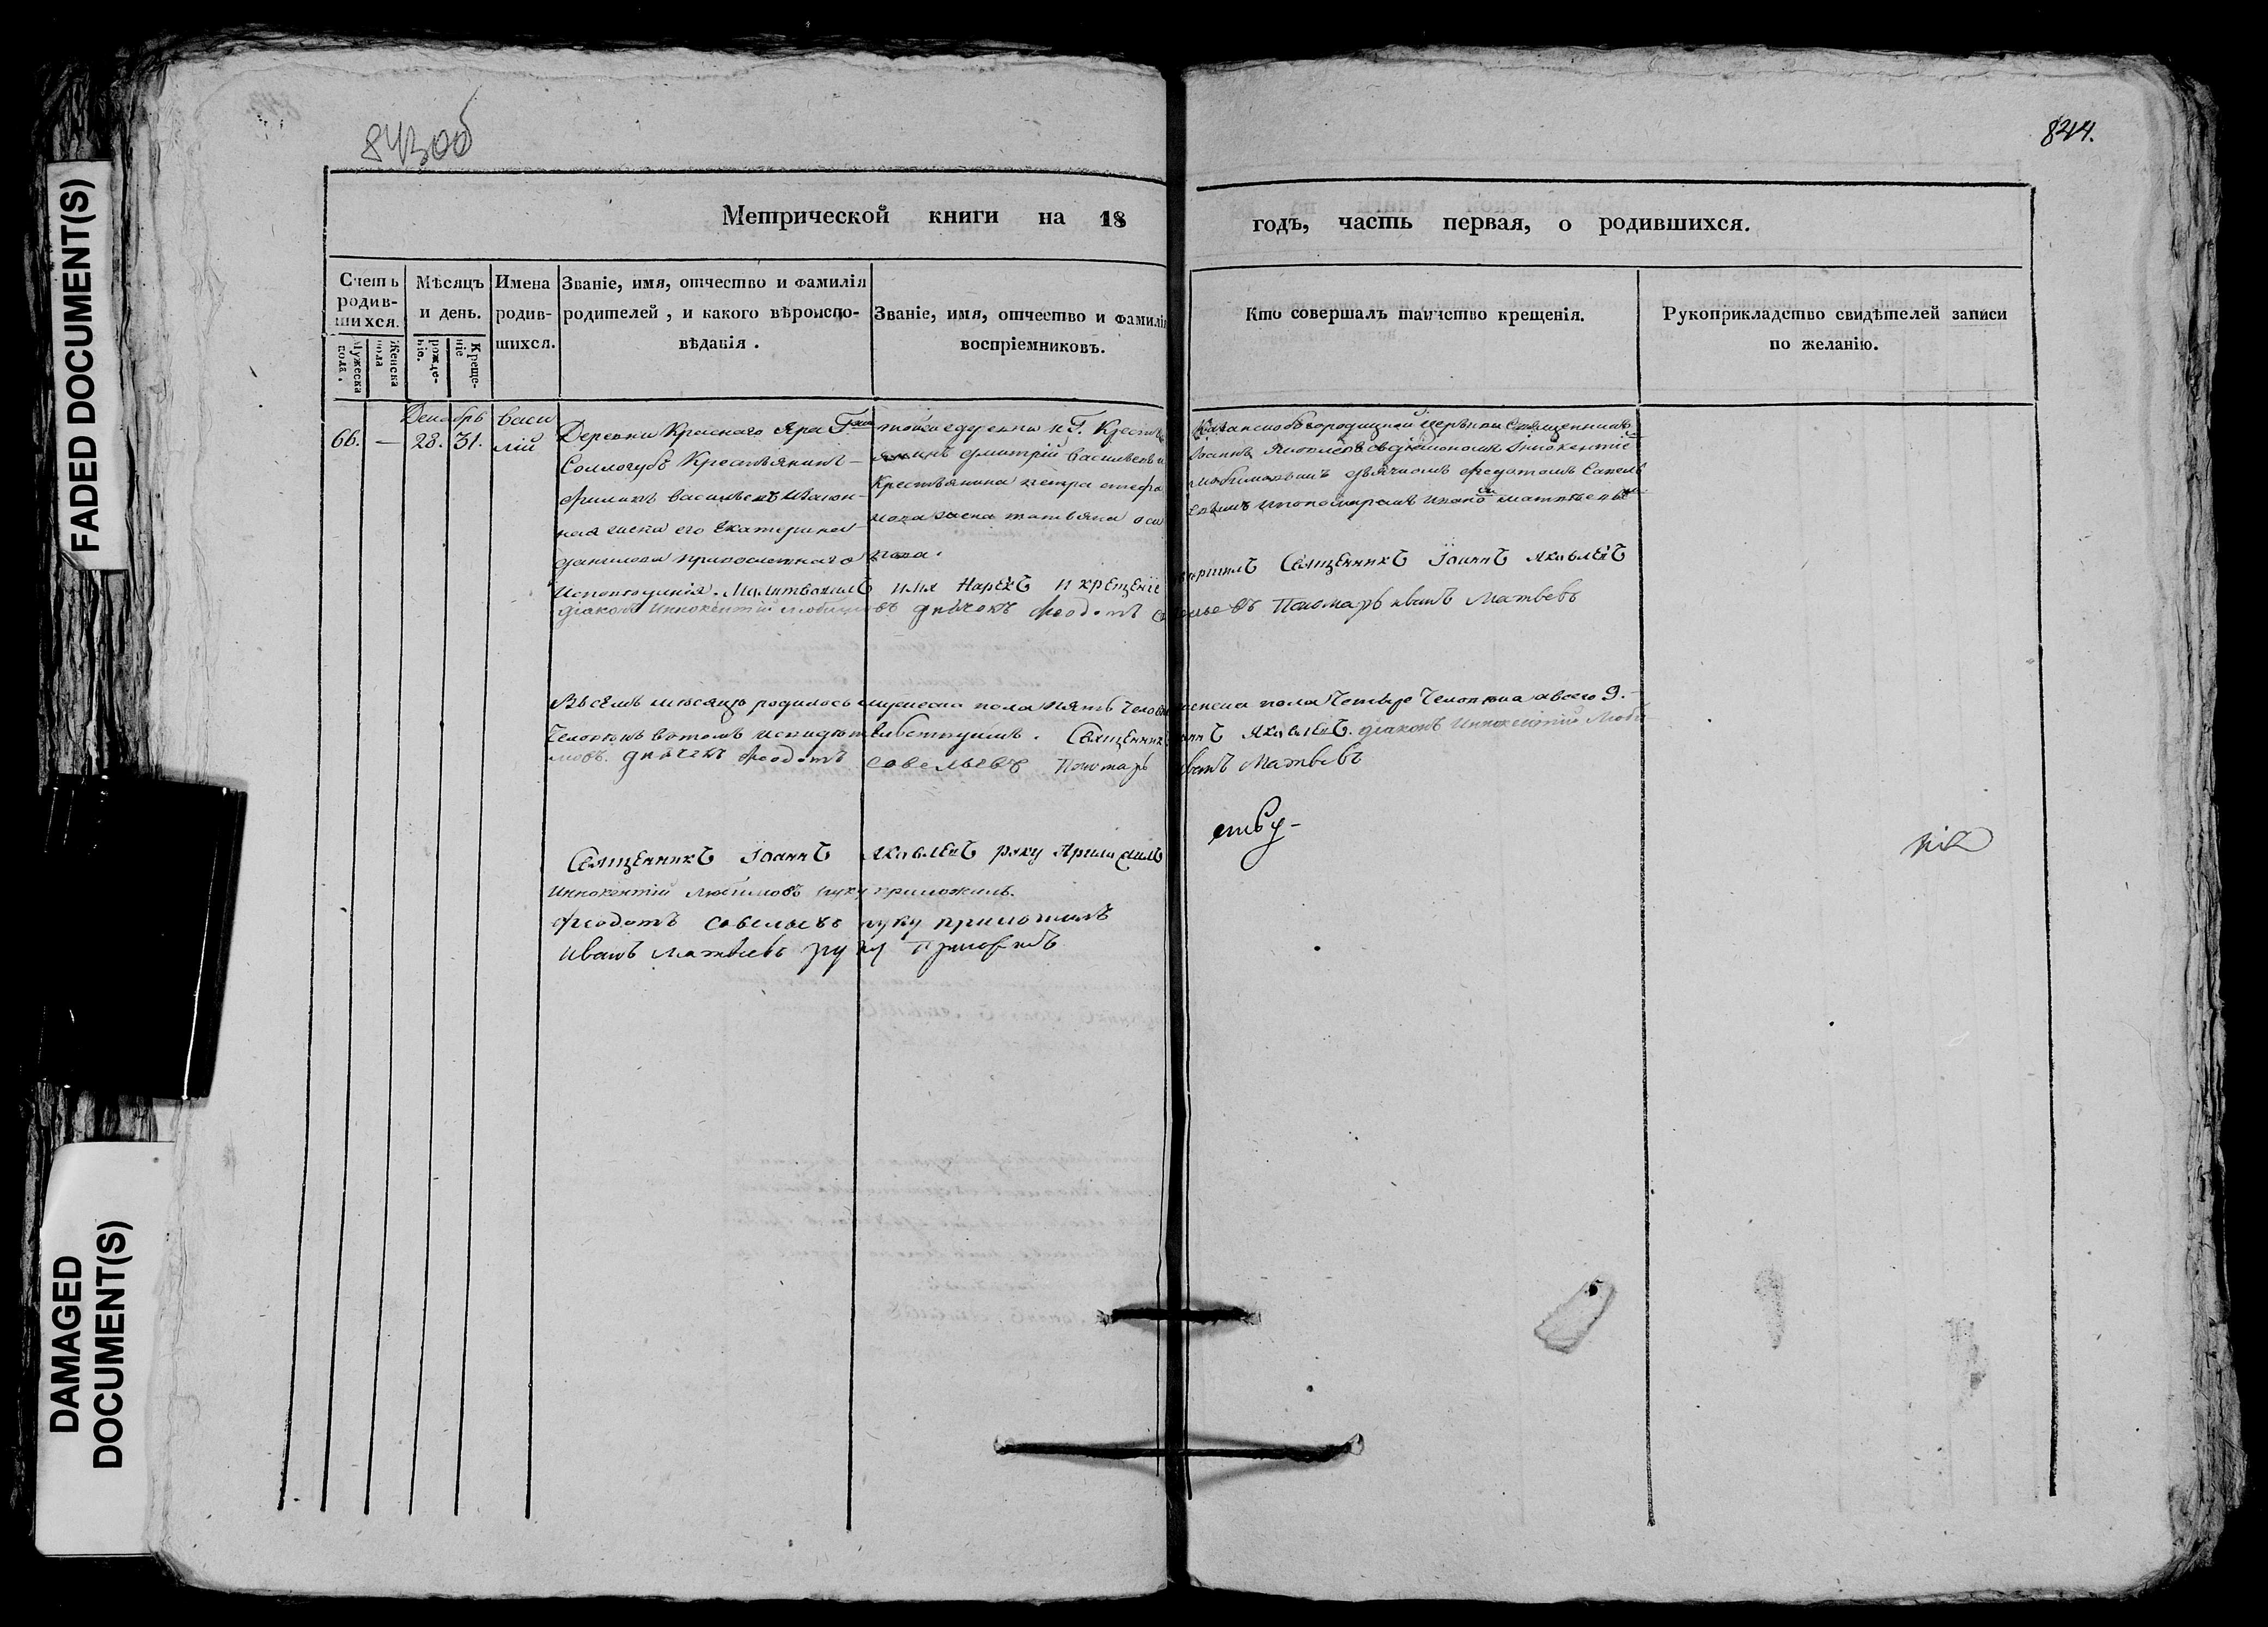 FADED DOCUMENT(S)
DAMAGED
DOCUMENT(S)
843об
844.
Метрической книги на 18 годъ, часть первая, о родившихся.
Счетъ
родив-
шихся.
Мужеска
пола.
Женска
пола
Мѣсяцъ
и день.
рожде-
нія.
Креще-
нія
Имена
родив-
шихся.
Званіе, имя, отчество и фамилія
родителей, и какого вѣроиспо-
вѣданія.
Званіе, имя, отчество и фамилія
воспріемниковъ.
Кто совершалъ таинство крещенія.
Рукоприкладство свидѣтелей записи
по желанію.
66.
—
Декабрь
28. 31.
Васи
лій
Деревни Краснаго Яра
Соллогубъ Крестьянинъ
Филипъ Васильевъ Закон-
ная жена его Екатерина
Данилова православнаго
Исповѣданія. Молитвовалъ имя Нарекъ и крещеніе
тойже деревни и Г. Кресть
янинъ Дмитрій Васильевъ и
Крестьянина Петра Стефа
нова жена Татьяна Оси
пова.
Казанскобогородицкой Церкви Священникъ
Іоаннъ Яковлевъ съ діакономъ Иннокентіе
Любимовымъ дьячкомъ Федотомъ Савель
евымъ и пономаремъ Иваномъ Матвеевы
вершилъ Священникъ Іоаннъ Яковлевъ
діаконъ Иннокентій Любимовъ дьячекъ Феодотъ Савельевъ Пономарь Иванъ Матвевъ
Всемъ месяце родилось мужеска пола пять Челове женска пола Четыре Человека авсего 9.
Человекъ втомъ исвидетельствуемъ. Священникъ Іоаннъ Яковлевъ. діаконъ Иннокентій Люби
мовъ. дьячекъ Феодотъ Савельевъ Пономарь Иванъ Матвевъ
Священникъ Іоаннъ Яковлевъ руку Приложилъ
Иннокентій Любимовъ руку приложилъ.
Феодотъ Савельевъ руку приложилъ
Иванъ Матвеевъ руку Приложилъ